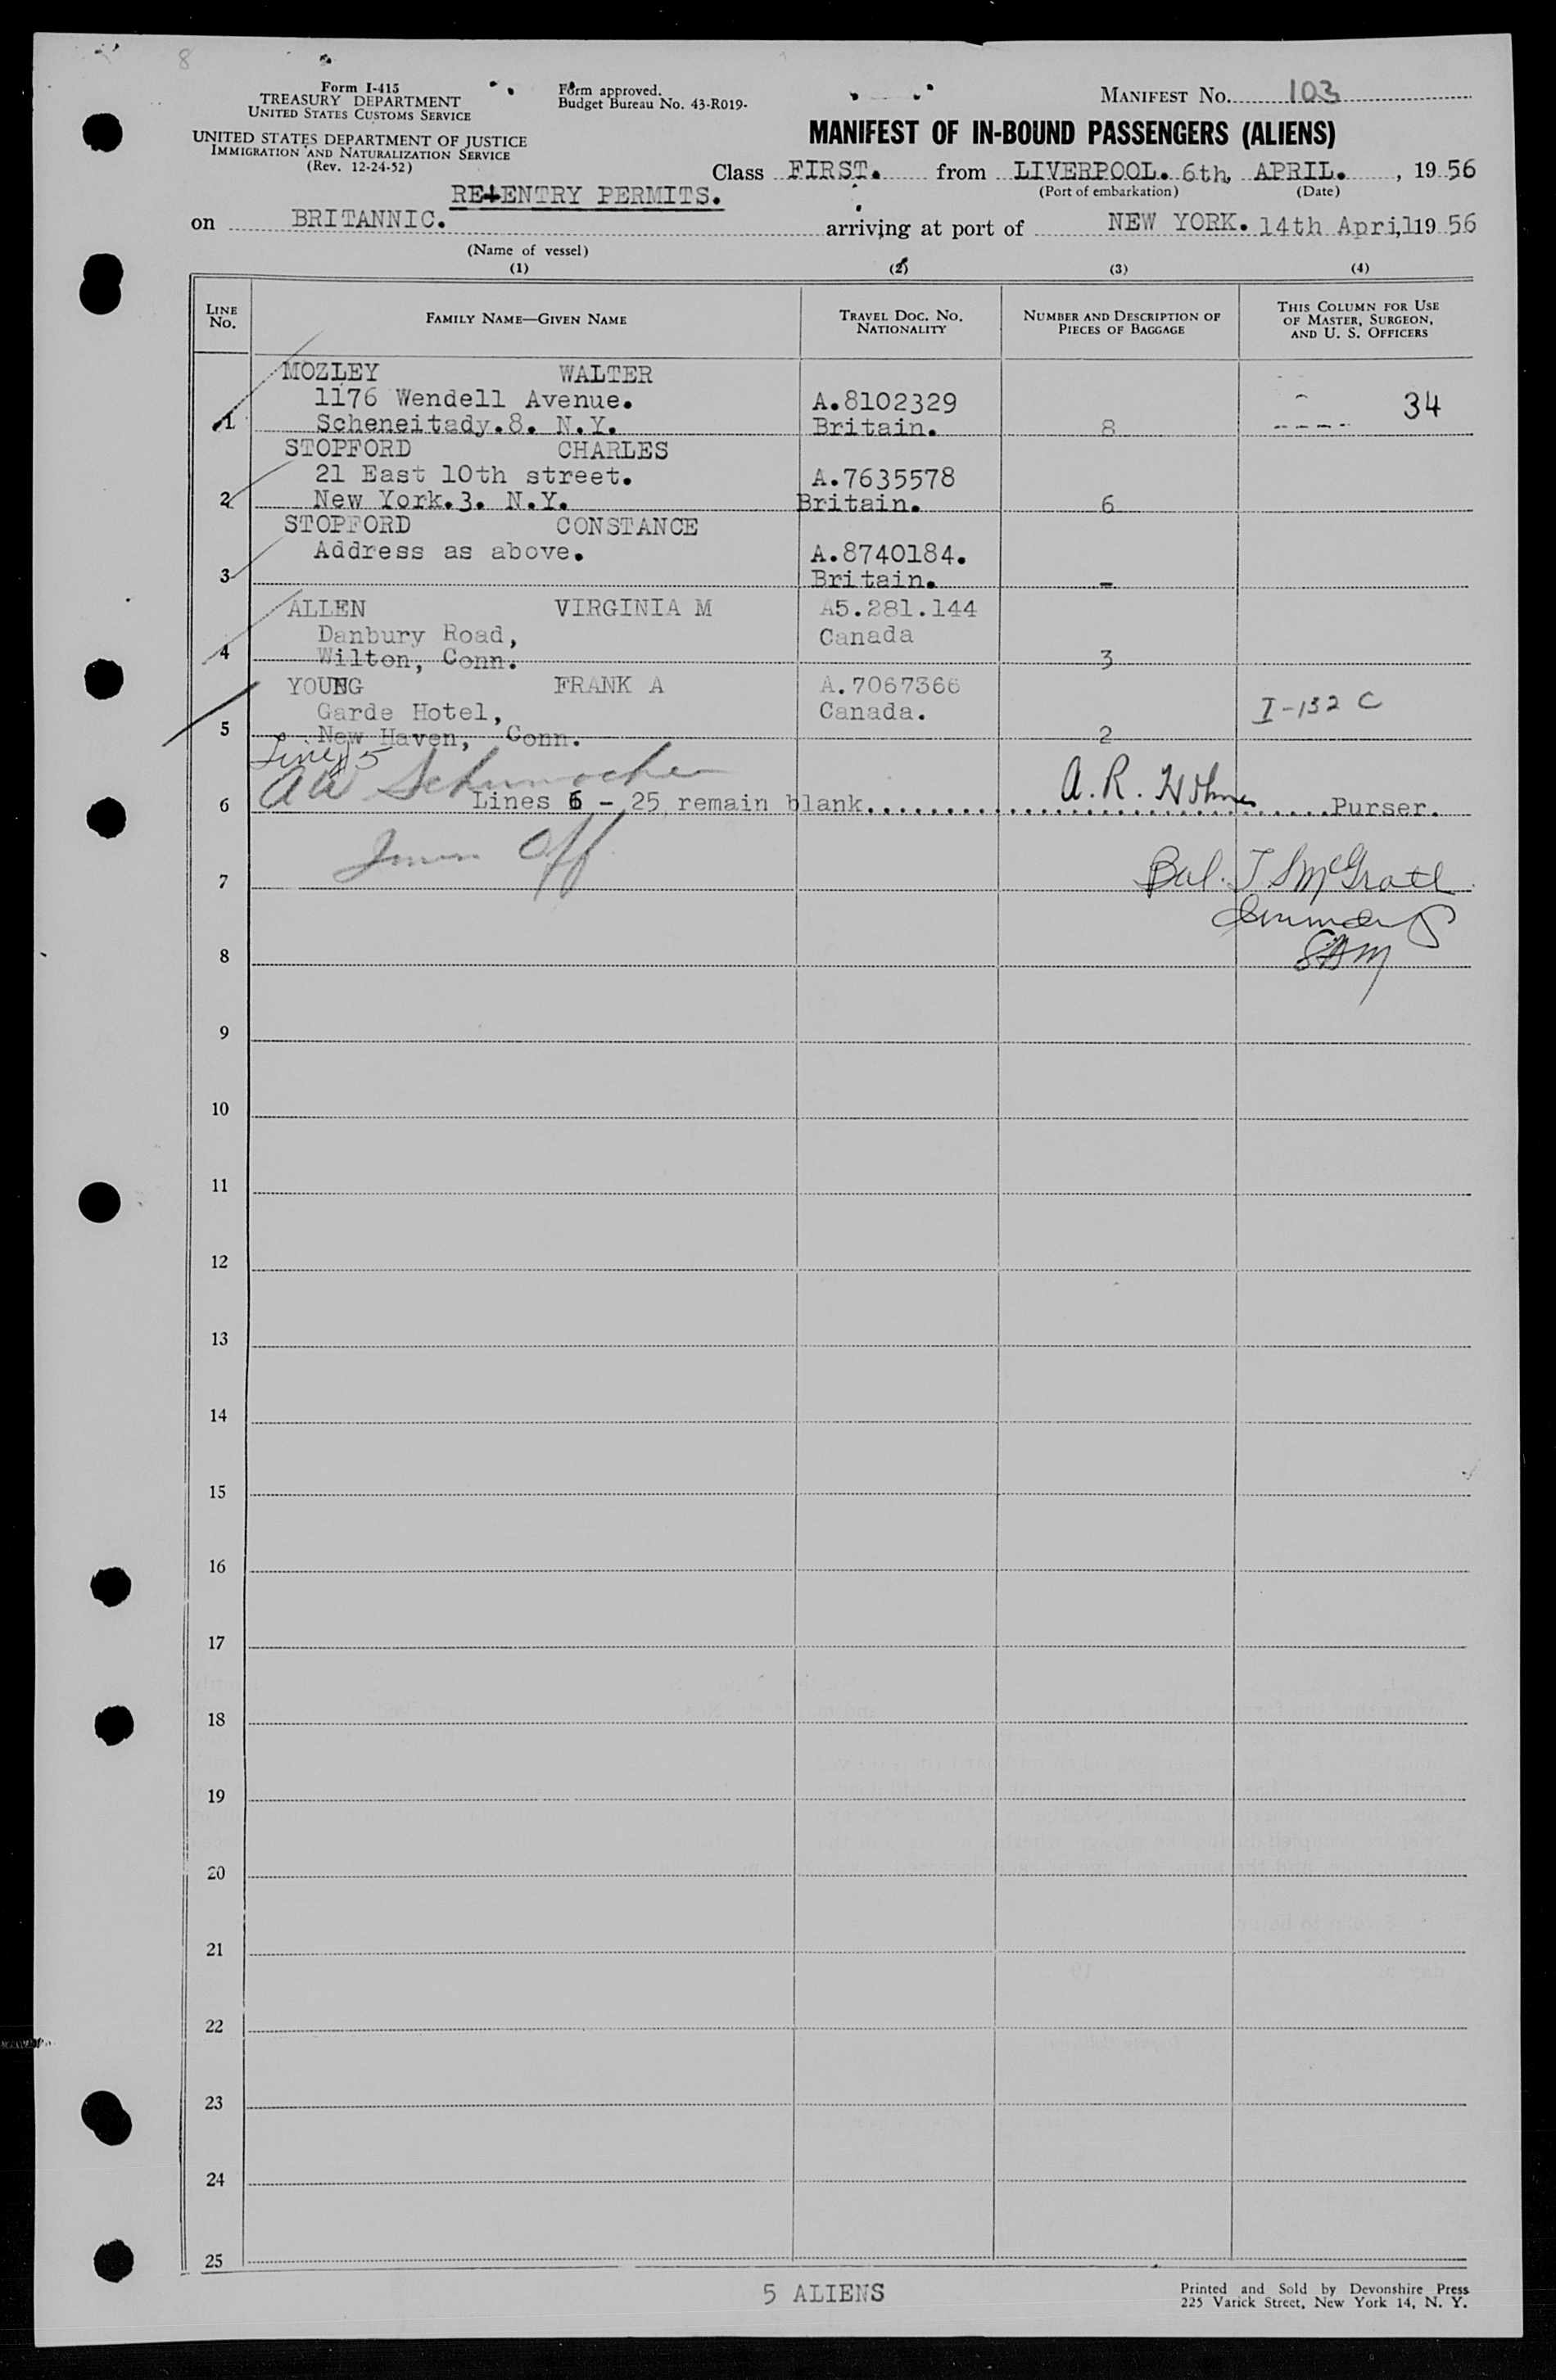 8
Form I-415
TREASURY DEPARTMENT
UNITED STATES CUSTOMS SERVICE
UNITED STATES DEPARTMENT OF JUSTICE
IMMIGRATION AND NATURALIZATION SERVICE
(Rev. 12-24-52)
Form approved.
Budget Bureau No. 43-R019-
MANIFEST No. 103
MANIFEST OF IN-BOUND PASSENGERS (ALIENS)
Class FIRST. from LIVERPOOL. 6th, APRIL. , 19 56
(Port of embarkation) (Date)
RE-ENTRY PERMITS.
on BRITANNIC. arriving at port of NEW YORK. 14th April, 19 56
(Name of vessel)
(1) (2) (3) (4)
LINE No. FAMILY NAME—GIVEN NAME TRAVEL DOC. NO. NATIONALITY NUMBER AND DESCRIPTION OF PIECES OF BAGGAGE THIS COLUMN FOR USE OF MASTER, SURGEON, AND U. S. OFFICERS
MOZLEY WALTER
1176 Wendell Avenue. A.8102329 34
1 Scheneitady.8. N.Y. Britain. 8
STOPFORD CHARLES
21 East 10th street. A.7635578
2 New York.3. N.Y. Britain. 6
STOPFORD CONSTANCE
Address as above. A.8740184.
3 Britain. -
ALLEN VIRGINIA M A5.281.144
Danbury Road, Canada
4 Wilton, Conn. 3
YOUNG FRANK A A.7067366
Garde Hotel, Canada. I-132 C
5 New Haven, Conn. 2
Line 5
AW Schumacher
6 Lines 6 - 25 remain blank. A. R. Purser.
Imm Off
7 Bal. T S McGrath
8
9
10
11
12
13
14
15
16
17
18
19
20
21
22
23
24
25
5 ALIENS
Printed and Sold by Devonshire Press
225 Varick Street, New York 14, N. Y.